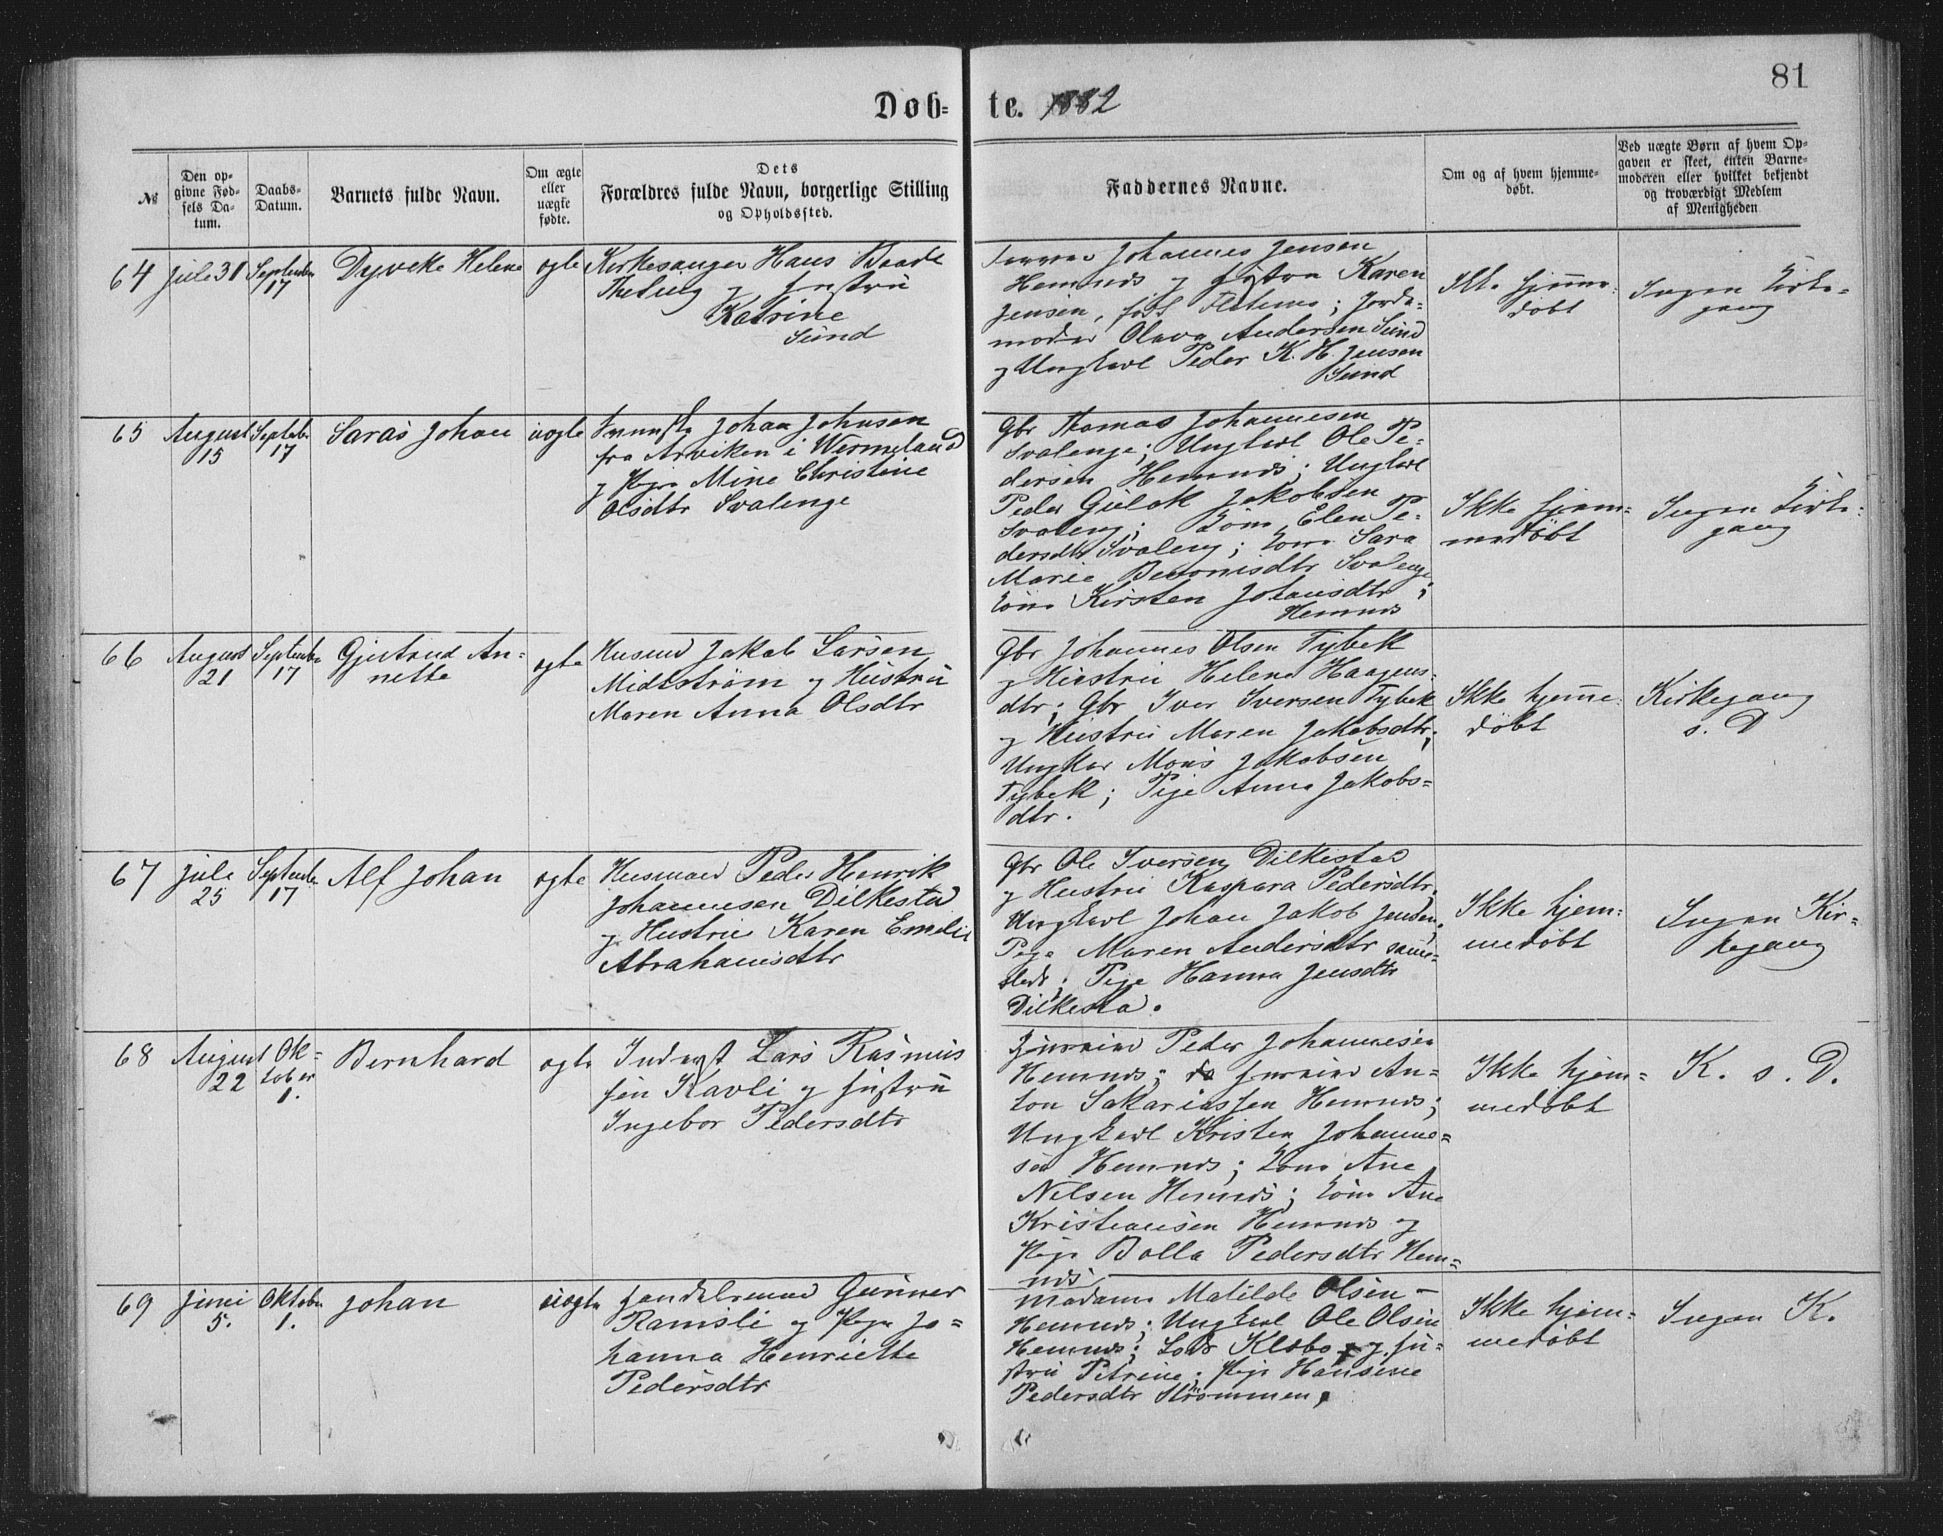 81
Döb- te. 1882
№
Den op-
givne Fød-
sels Da-
tum.
Daabs-
Datum.
Barnets fulde Navn.
Om ægte
eller
uægte
fødte.
Dets
Forældres fulde Navn, borgerlige Stilling
og Opholdssted.
Faddernes Navne.
Om og af hvem hjemme-
døbt.
Ved uægte Børn af hvem Op-
gaven er skeet, enten Barne-
moderen eller hvilket bekjendt
og troværdigt Medlem
af Menigheden
64
Juli 31
September
17
Dyveke Helene
ægte
Kirkesanger Hans Baade
og Hustru
Katrine
Sund
Johannes Jensen
Hemnes og Hustru Karen
Jensen, født; Jorde-
moder Olava Andersen Sund
og Ungkarl Peder K. H. Jensen
Sund
Ikke hjemme-
døbt
Ingen Kirke-
gang
65
August
15
Septebr
17
Saras Johan
uægte
Johan Johnsen
fra Arviken i Wermeland
og Pige Mine Christine
Olsdtr Svalenge
Gbr Thomas Johannesen
Svalenge; Ungkarl Ole Pe-
dersen Hemnes; Ungkarl
Peder Gulak Jakobsen
Svaleng; Kone Elen Pe-
dersdtr Svaleng; Kone Sara
Marie Benonisdtr Svalenge
Kone Kirsten Johansdtr;
Hemnes
Ikke hjem-
medøbt
Ingen Kirke-
gang
66
August
21
September
17
Gjertrud An-
nette
ægte
Husmd Jakob Larsen
Midtstrøm og Hustru
Maren Anna Olsdtr
Gbr Johannes Olsen Tybek
og Hustru Helene Haagens-
dtr; Gbr Iver Iversen Tybek
og Hustru Maren Jakobsdtr;
Ungkar Mons Jakobsen
Tybek; Pige Anna Jakobs-
dtr.
Ikke hjeme-
døbt
Kirkegang
s. D
67
Juli
25
September
17
Alf Johan
ægte
Husmand Peder Henrik
Johannesen Dilkestad
og Hustru Karen Emelie
Abrahamsdtr
Gbr Ole Iversen Dilkestad
og Hustru Kaspara Pedersdtr,
Ungkarl Johan Jakob Jensen,
Pige Maren Andersdtr samme-
steds; Pige Hanna Jensdtr
Dilkestad.
Ikke hjem-
medøbt
Ingen Kir-
kegang
68
August
22
Ok-
tober
1.
Bernhard
ægte
Inderst Lars Rasmus
sen Kavli og Hustru
Ingebor Pedersdtr
Peder Johannesen
Hemnes; An-
ton Sakariassen Hemnes;
Ungkarl Kristen Johanne-
sen Hemnes; Kone Ane
Nilsen Hemnes; Kone Ane
Kristiansen Hemnes og
Pige Bolla Pedersdtr Hem-
nes
Ikke hjem-
medøbt
K. s. D.
69
Juni
5.
Oktober
1.
Johan
uægte
Handelsmand Gunner
Ramsli og Pige Jo-
hanna Henriette
Pedersdtr
Madame Matilde Olsen -
Hemnes; Ungkarl Ole Olsen
Hemnes; Lods Klæbo og Hu-
stru Petrine; Pige Hansine
Pedersdtr Strømmen,
Ikke hjem-
medøbt
Ingen K.